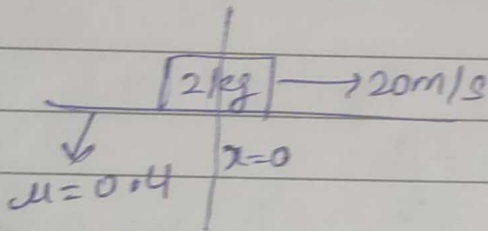 2kg → 20m/s
x=0
μ=0.4